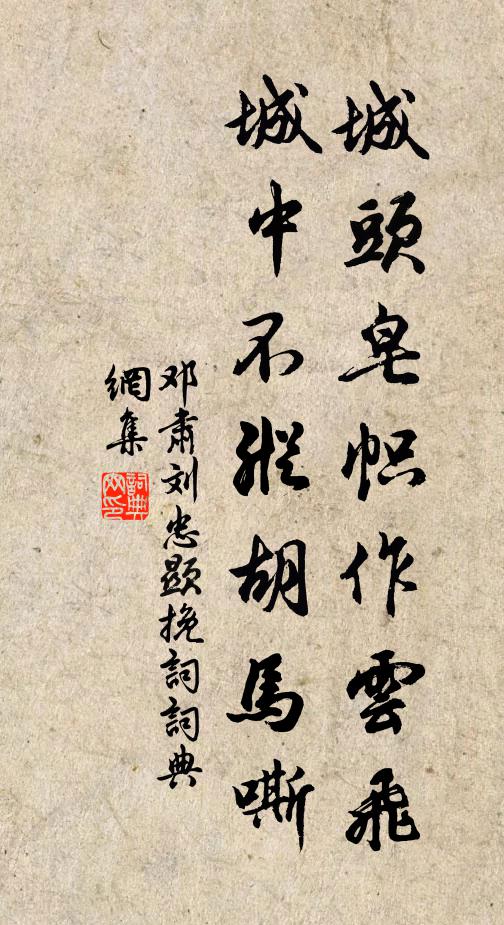 城頭皂帜作雲飛
城中不縱胡馬嘶
邓肃刘忠顯挽詞詞典
網集
詞典